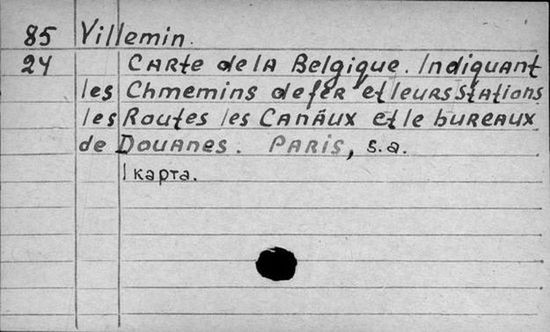 85 Villemin.
24 Carte de la Belgique. Indiquant
les Chmemins de fer et leurs Stations
les Routes les Canäux et le bureaux
de Douanes. Paris, s.a.
1 карта.